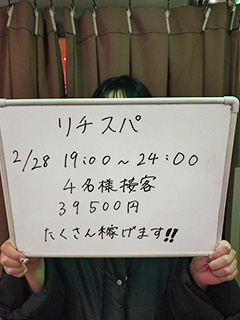 リチスパ
2/28 19:00～24:00
4名様接客
39500円
たくさん稼げます!!